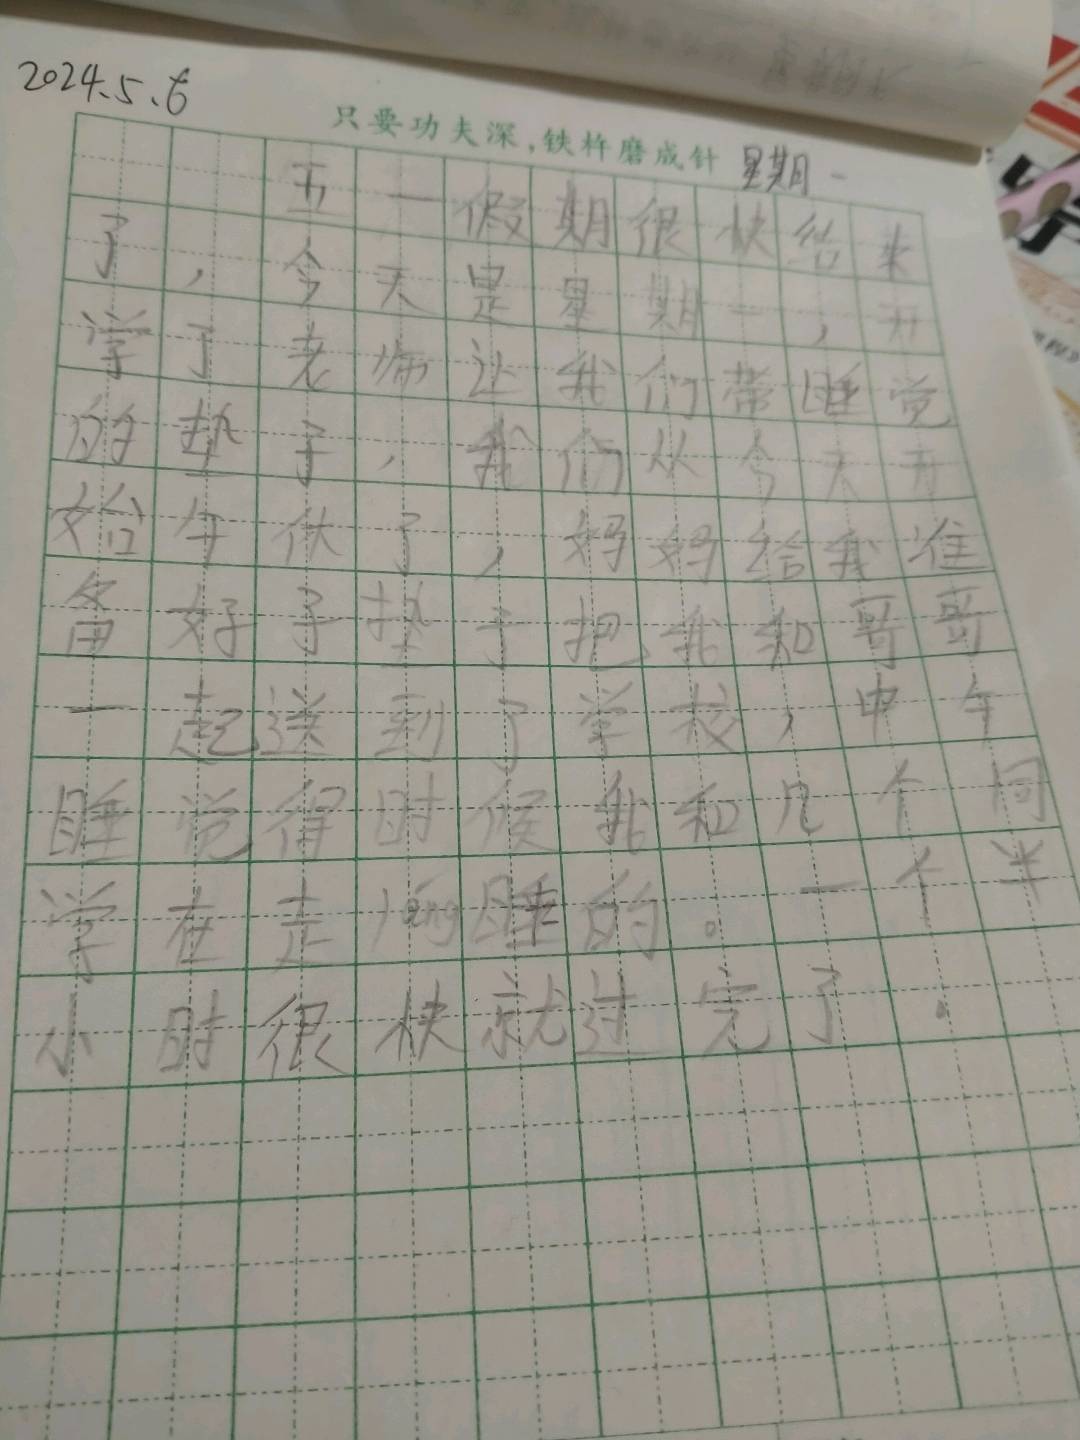 2024.5.6
只要功夫深,铁杵磨成针 星期一
五一假期很快结束
了，今天是星期一，开
学了老师让我们带睡觉
的垫子，我们从今天开
始午休了，妈妈给我准
备好子垫子把我和哥哥
一起送到了学校，中午
睡觉得时候我和几个同
学在走láng睡的。一个半
小时很快就过完了。